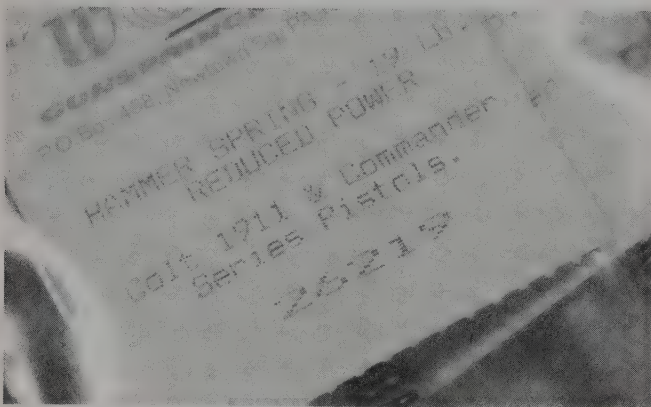 GUNSPRINGS
P.O. Box 468, Newtown Sq.
HAMMER SPRING - 19 LB.
REDUCED POWER
Colt 1911 & Commander
Series Pistols.
26219